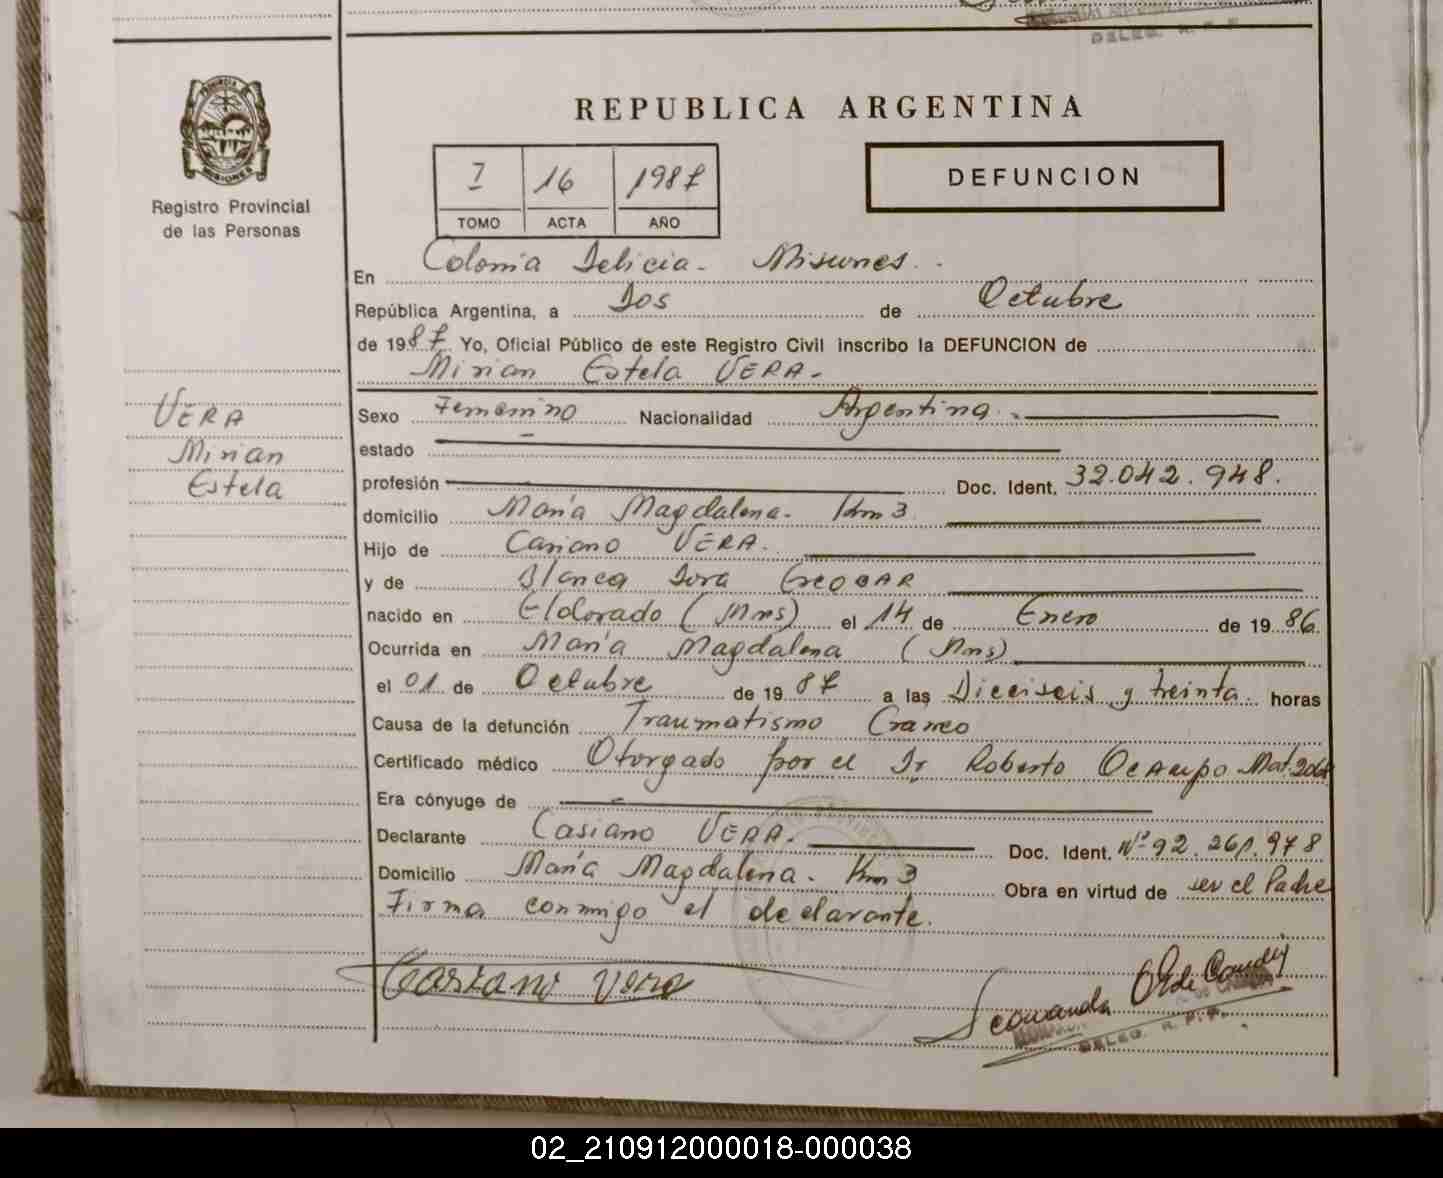 DELEG. R. P. P.
PROVINCIA DE
MISIONES
Registro Provincial
de las Personas
REPUBLICA ARGENTINA
I 16 1987
TOMO ACTA AÑO
DEFUNCION
En Colonia Delicia - Misiones.
República Argentina, a Dos de Octubre
de 1987 Yo, Oficial Público de este Registro Civil inscribo la DEFUNCION de
Mirian Estela VERA.
VERA
Mirian
Estela
Sexo Femenino Nacionalidad Argentina.
estado
profesión Doc. Ident. 32.042.948.
domicilio María Magdalena - Km 3
Hijo de Casiano VERA.
y de Blanca Dora EscoBAR
nacido en Eldorado (Mnes) el 14 de Enero de 1986
Ocurrida en María Magdalena (Mnes)
el 01 de Octubre de 1987 a las Dieciseis y treinta horas
Causa de la defunción Traumatismo Craneo
Certificado médico Otorgado por el Dr Roberto Ocampo Mat.
Era cónyuge de
Declarante Casiano VERA. Doc. Ident. Nº 92.261.978
Domicilio María Magdalena. Km 3 Obra en virtud de ser el Padre
Firma conmigo el declarante.
Casiano Vera
DELEG. R. P. P.
02_210912000018-000038